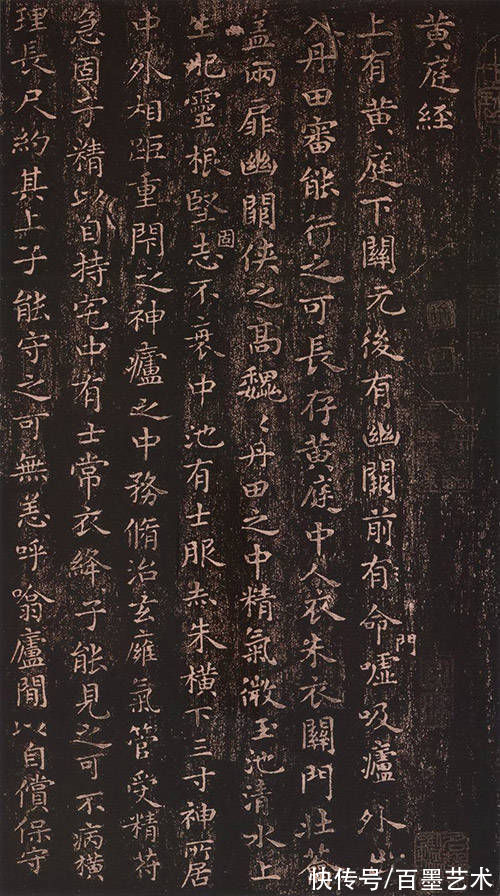 黄庭経
上有黄庭下關元後有幽闕前有命門噓吸廬外出
入丹田審能行之可長存黄庭中人衣朱衣關門壯蘥
盖兩扉幽闕俠之高巍〻丹田之中精氣微玉池清水上
生肥靈根堅固志不衰中池有士服赤朱横下三寸神所居
中外相距重閇之神廬之中務脩治玄廱氣管受精苻
急固子精以自持宅中有士常衣絳子能見之可不病横
理長尺約其上子能守之可無恙呼噏廬間以自償保守
快传号/百墨艺术